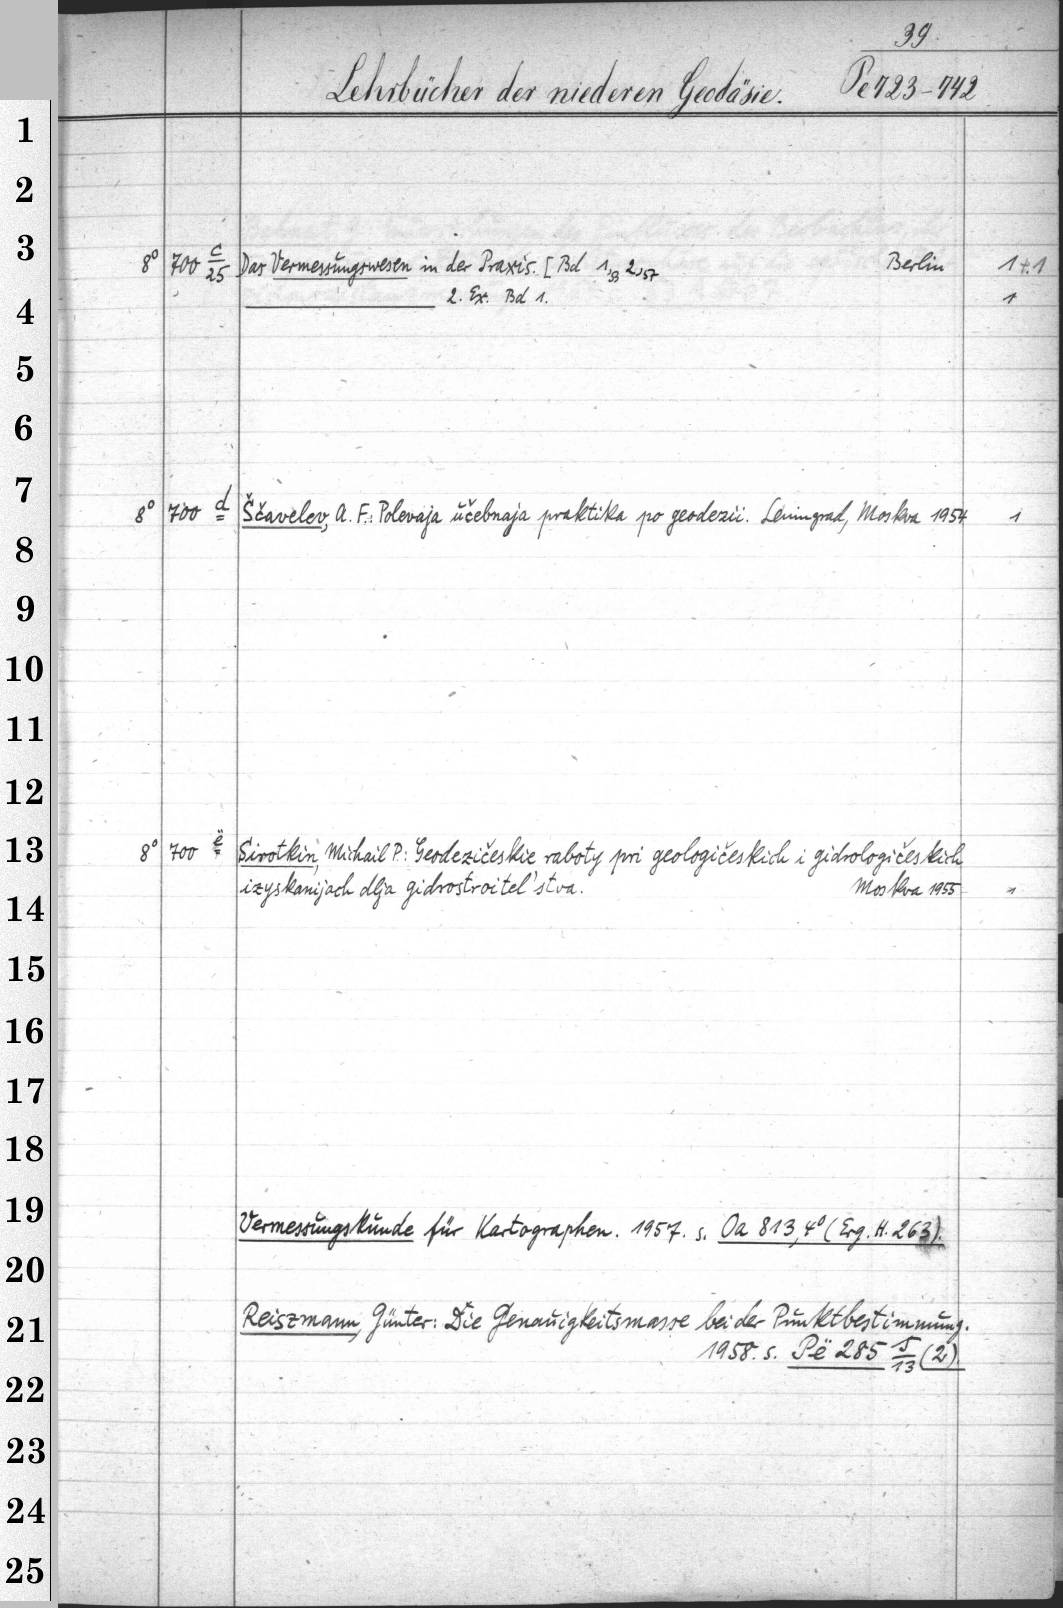 39
Lehrbücher der niederen Geodäsie. Pe 723-742
1
2
3
8° 700 c/25 Das Vermessungswesen in der Praxis. [Bd 1,53 2,57 Berlin 1+1
2. Ex. Bd 1. 1
4
5
6
7
8° 700 d Ščavelev, A. F.: Polevaja učebnaja praktika po geodezii. Leningrad, Moskva 1954 1
8
9
10
11
12
13
8° 700 ë Sirotkin, Michail P.: Geodezičeskie raboty pri geologičeskich i gidrologičeskich
izyskanijach dlja gidrostroitel'stva. Moskva 1955 1
14
15
16
17
18
19
Vermessungskunde für Kartographen. 1957. s. Oa 813, 4° (Erg. H. 263).
20
21
Reiszmann, Günter: Die Genauigkeitsmasse bei der Punktbestimmung.
1958. s. Pë 285 5/13 (2).
22
23
24
25